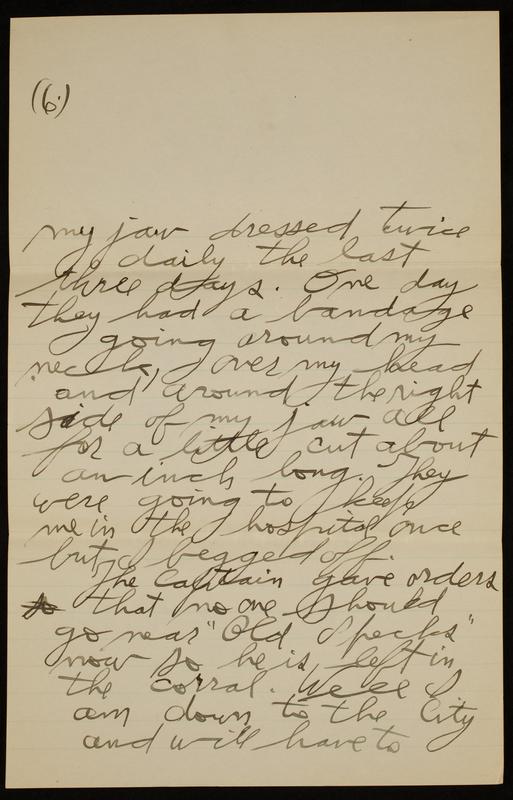 (6.)
my jaw dressed twice
daily the last
three days. One day
they had a bandage
going around my
neck, over my head
and around the right
side of my jaw all
for a little cut about
an inch long. They
were going to keep
me in the hospital once
but I begged off.
The Captain gave orders
that no one should
go near "Old Specks"
now so he is left in
the corral. Well I
am down to the City
and will have to